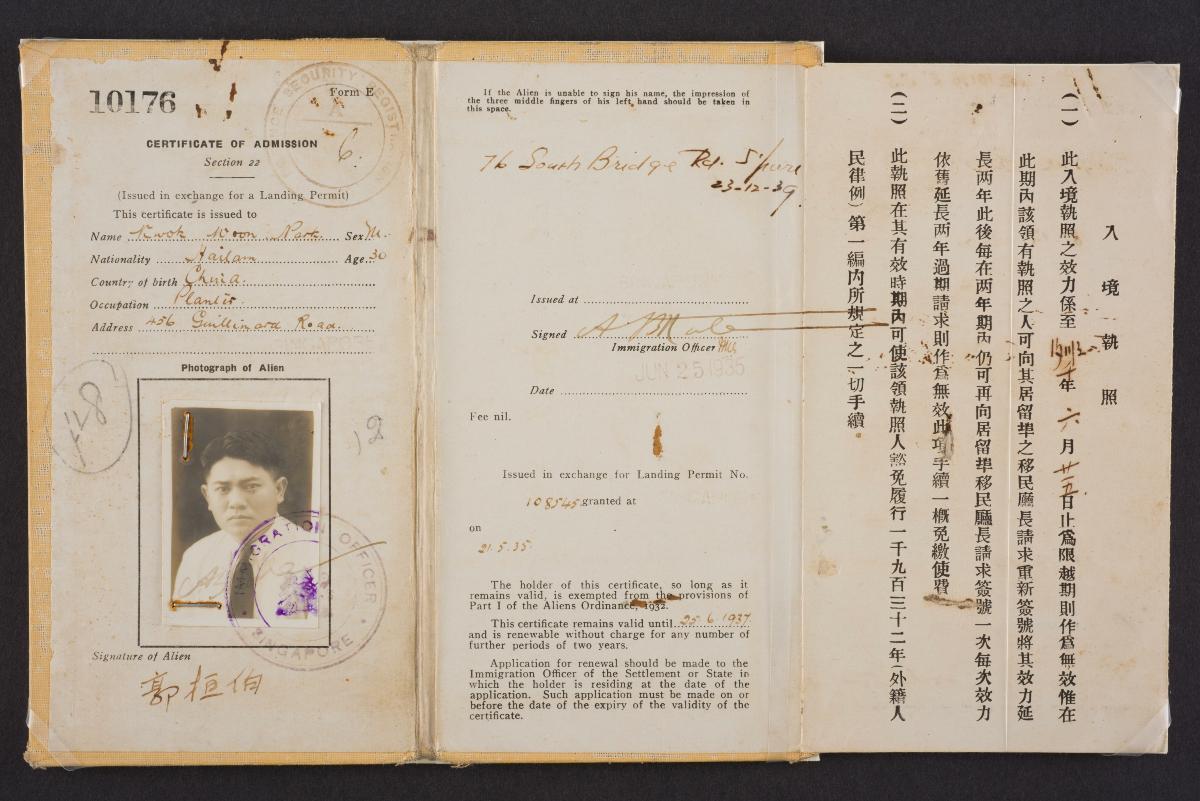 10176
Form E
A
6.
CERTIFICATE OF ADMISSION
Section 22
(Issued in exchange for a Landing Permit)
This certificate is issued to
Name Kwok Woon Park Sex M.
Nationality Hailam Age 30
Country of birth China.
Occupation Planter
Address 456 Guillimard Road.
Photograph of Alien
IMMIGRATION OFFICER
SINGAPORE
Signature of Alien
郭桓伯
If the Alien is unable to sign his name, the impression of
the three middle fingers of his left hand should be taken in
this space.
76 South Bridge Rd. S'pore
23-12-39.
Issued at
Signed
Immigration Officer
JUN 25 1935
Date
Fee nil.
Issued in exchange for Landing Permit No.
108545 granted at
on
21.5.35.
The holder of this certificate, so long as it
remains valid, is exempted from the provisions of
Part I of the Aliens Ordinance, 1932.
This certificate remains valid until 25.6.1937
and is renewable without charge for any number of
further periods of two years.
Application for renewal should be made to the
Immigration Officer of the Settlement or State in
which the holder is residing at the date of the
application. Such application must be made on or
before the date of the expiry of the validity of the
certificate.
入境執照
(一) 此入境執照之效力係至 年六月廿五日止爲限越期則作爲無效惟在
此期內該領有執照之人可向其居留埠之移民廳長請求重新簽號將其效力延
長两年此後每在两年期內仍可再向居留埠移民廳長請求簽號一次每次效力
依舊延長两年過期請求則作爲無效此項手續一概免繳使費
(二) 此執照在其有效時期內可使該領執照人豁免履行一千九百三十二年(外籍人
民律例)第一編內所規定之一切手續